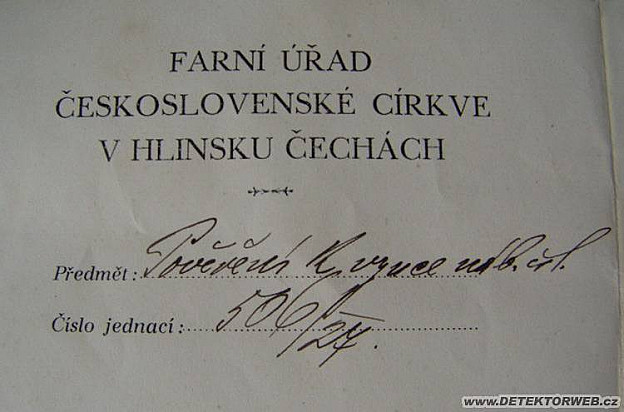 FARNÍ ÚŘAD
ČESKOSLOVENSKÉ CÍRKVE
V HLINSKU ČECHÁCH
Předmět: Pověření k výuce náb. čsl.
Číslo jednací: 506/27.
www.DETEKTORWEB.cz